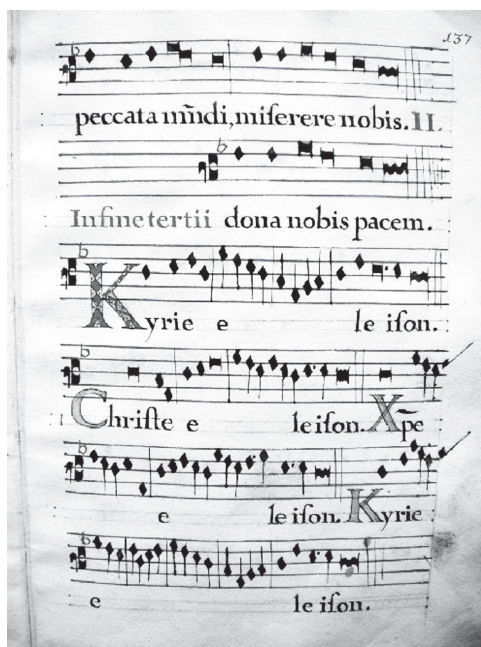 137
peccata m̄ndi,miſerere nobis.II.
In fine tertii dona nobis pacem.
Kyrie e le iſon.
Chriſte e le iſon. Xp̄e
e le iſon. Kyrie
e le iſon.